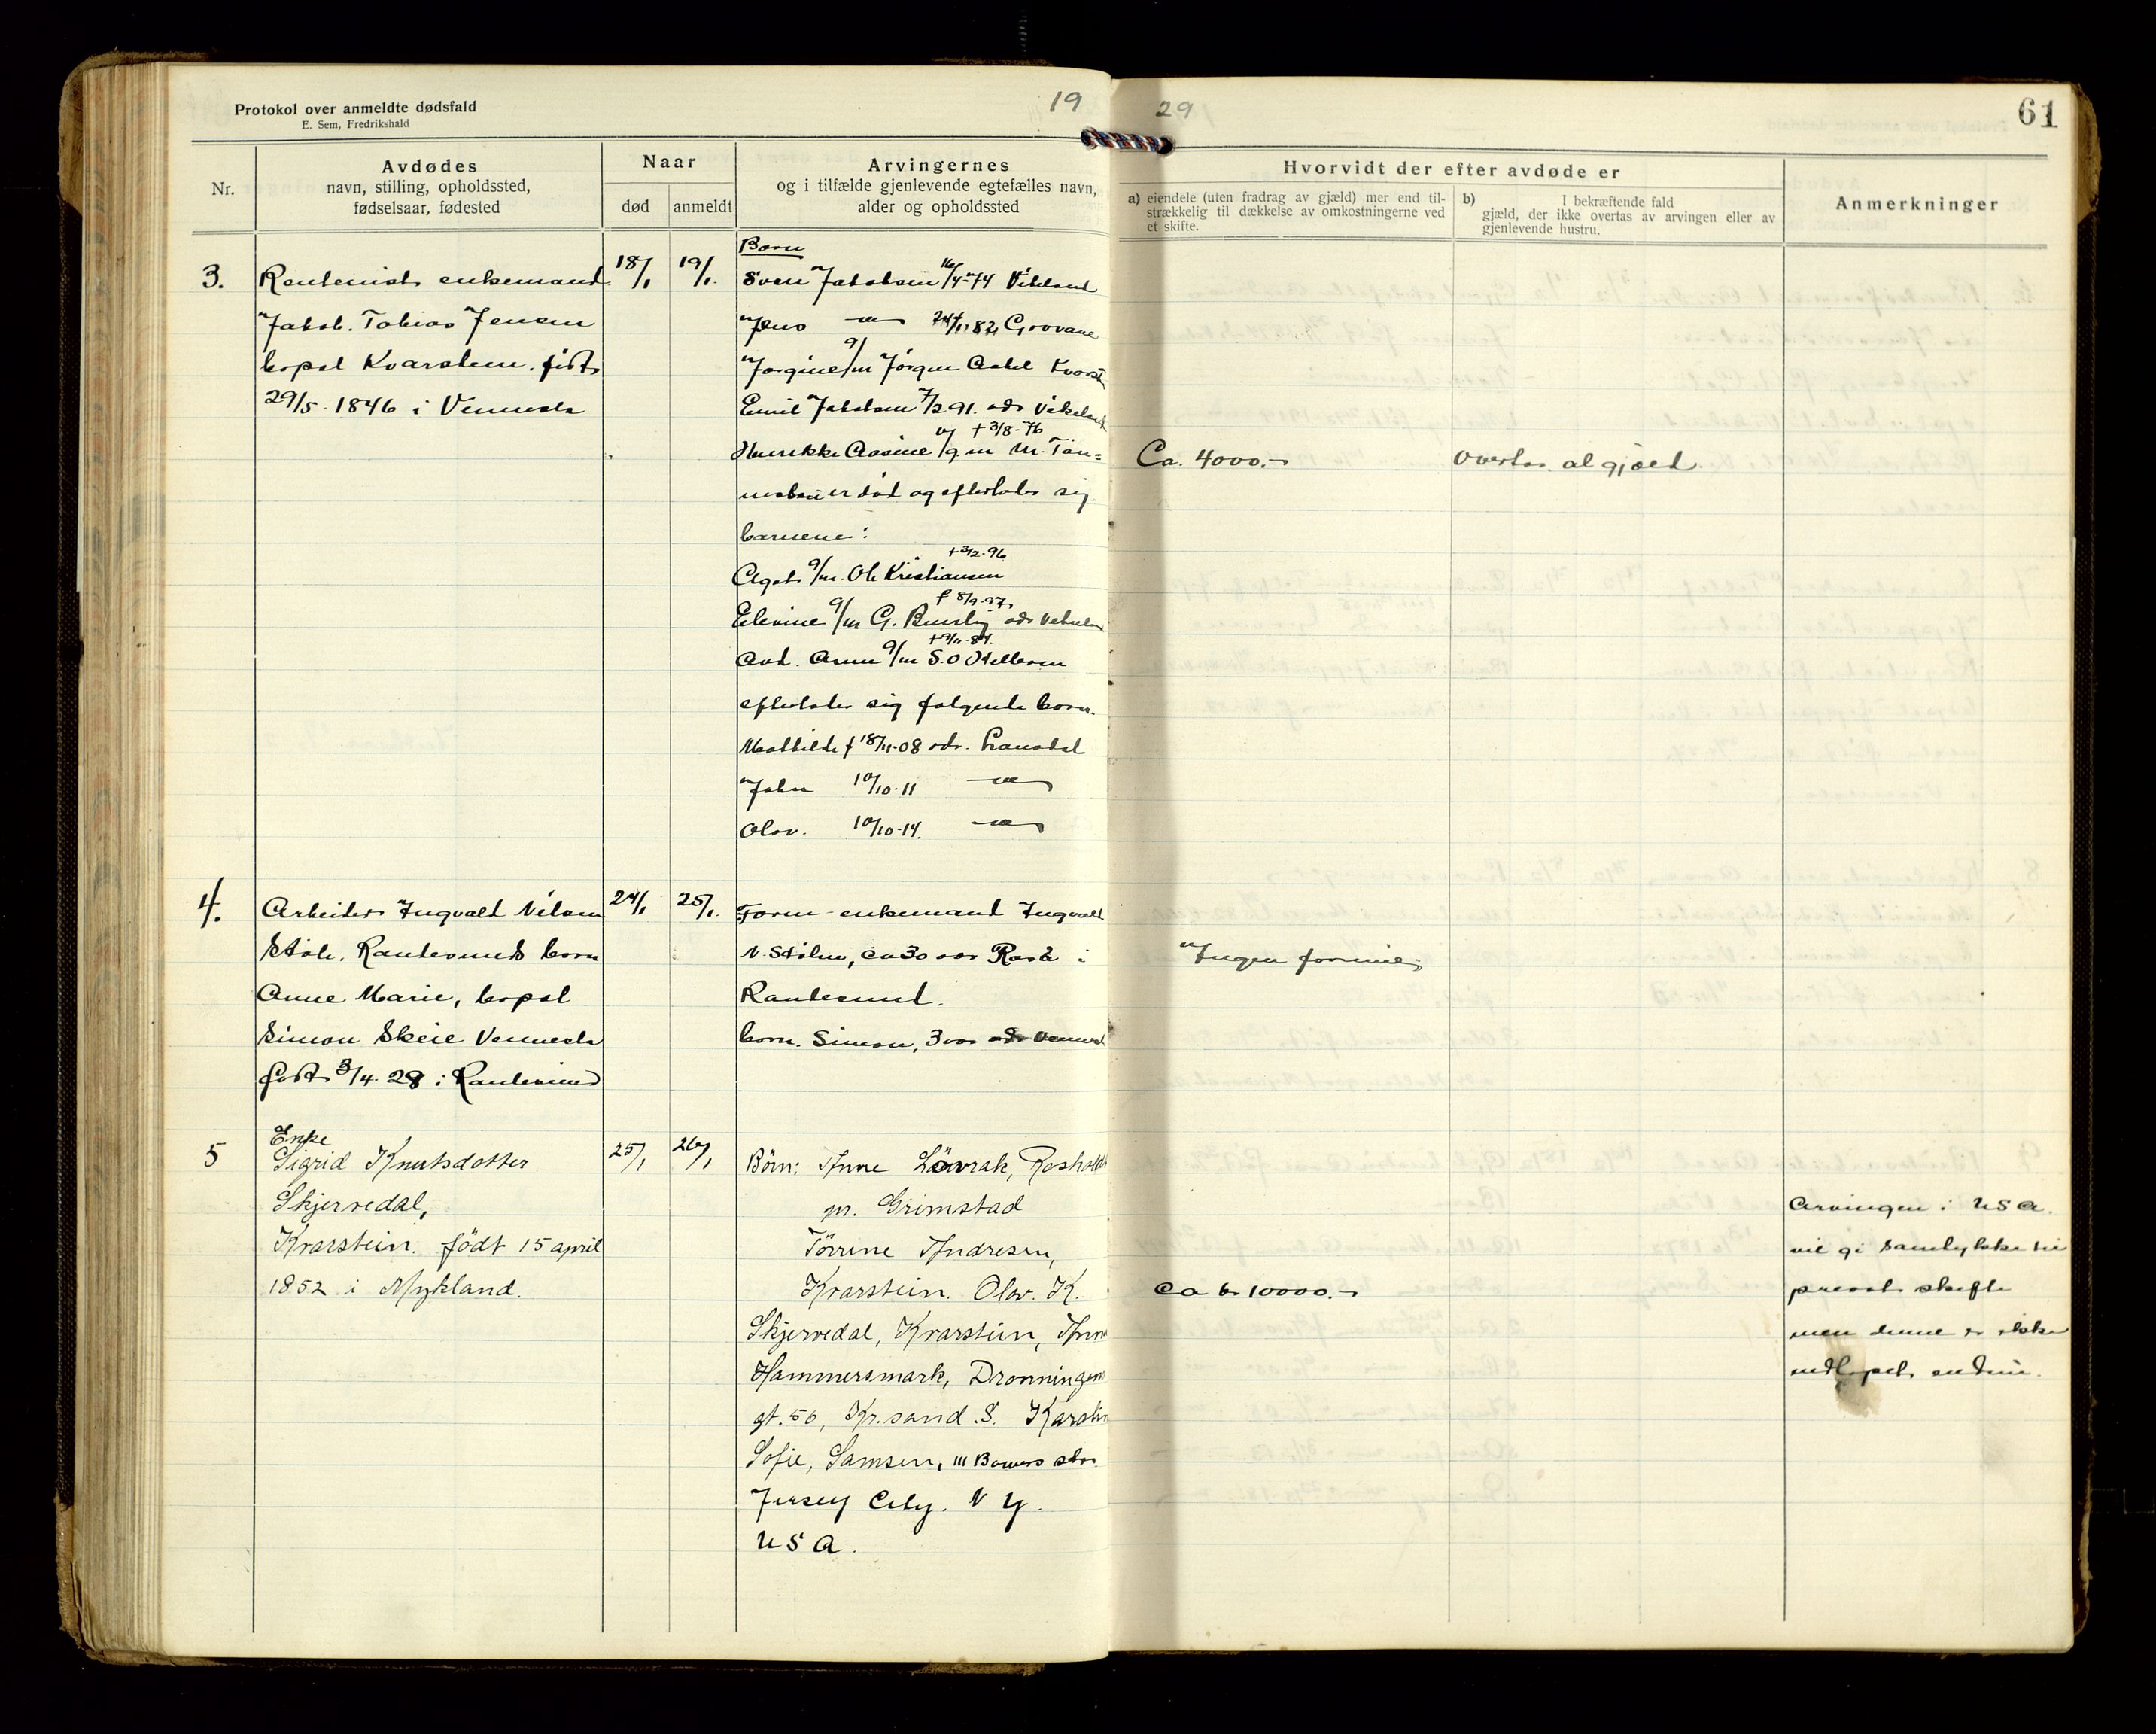 Protokol over anmeldte dødsfald
E. Sem, Fredrikshald
19
29
61
Nr.
Avdødes
navn, stilling, opholdssted,
fødselsaar, fødested
Naar
død
anmeldt
Arvingernes
og i tilfælde gjenlevende egtefælles navn,
alder og opholdssted
Hvorvidt der efter avdøde er
a) eiendele (uten fradrag av gjæld) mer end til-
strækkelig til dækkelse av omkostningerne ved
et skifte.
b) I bekræftende fald
gjæld, der ikke overtas av arvingen eller av
gjenlevende hustru.
Anmerkninger
3.
Rentenist enkemand
Jakob. Tobias Jensen
bopæl Kvarstein. født
29/5. 1846 i Vennesla
18/1
19/1.
Børn
Sven Jakobsen 16/4-74 Vikeland
Jens 24/11 82, Grovane
Jørgine g/m Jørgen Aabel Kvarst
Emil Jakobsen 7/2 91. ads Vikeland
Henrikke Aasine g/m M. Tøn=
† 3/8-76
nesen er død og efterlater sig
barnene:
Agate g/m. Ole Kristiansen
+ 3/2-96
Elevine g/m G. ads
f 8/9-97
Avd. Anna g/m S. O
+ 9/11-84.
efterlater sig følgende børn.
Mathilde f 18/11-08 ads.
John 10/10-11
Olav. 10/10-14.
Ca. 4000.-
Overtar al gjæld.
4.
Arbeider Ingvald Nilsen
Støle. Randesunds barn
Anne Marie, bopæl
Simon Skeie Vennesla
født 3/4. 28 i Randesund
24/1
25/1.
Foren enkemand Ingvald
N. Stølen, ca 30 aar i
Randesund.
barn. Simon, 3 aar
Ingen formue
5
Enke
Sigrid Knutsdotter
Skjervedal,
Kvarstein. født 15 april
1852 i Mykland.
25/1
26/1
Börn: Anne Lövrak, Rosholdt
pr. Grimstad
Törrine Andresen,
Kvarstein. Olav. K.
Skjervedal, Kvarstein, Anna
Hammersmark, Dronningens
gt. 50, Kr.sand. S. Karolin
Sofie, Samsen, 111 Bowers str.
Jersey City. N Y.
USA.
ca kr 10000.-
Arvingen i USA.
vil gi samtykke til
privat skifte
men denne er ikke
indløpet endnu.